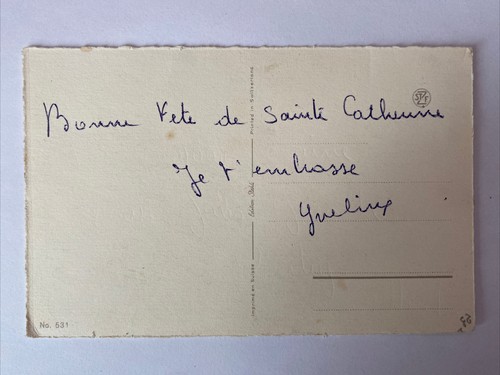 Bonne Fete de Sainte Catherine
Je t'embrasse
Yveline
Printed in Switzerland
Edition Stehli
Imprimé en Suisse
No. 531